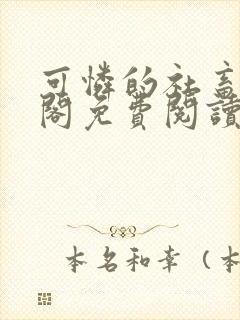 可憐的社畜
閣免費閱讀
本名和幸（本